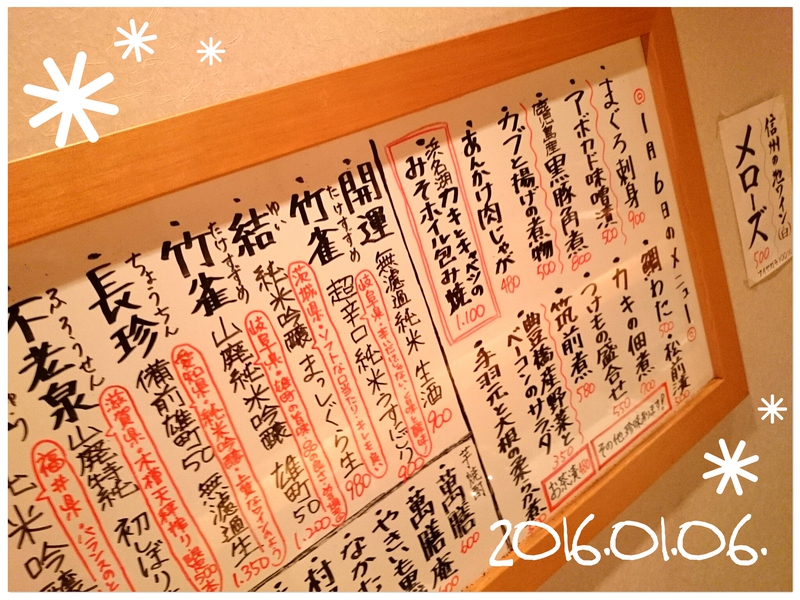 信州の地ワイン(白)
メローズ
500
◎1月6日のメニュー◎
・まぐろ刺身 900
・アボカド味噌漬 500
・鹿児島産黒豚角煮 800
・カブと揚げの煮物 500
・あんかけ肉じゃが 480
浜名湖カキとキャベツの
みそホイル包み焼 1.100
鯛わた 500
・松前漬
・カキの佃煮 700
・つけもの盛合せ 550
・筑前煮 580
・豊橋産野菜と
ベーコンのサラダ
350
・手羽元と大根の柔らか煮
その他珍味あります!
お茶漬
・開運 無濾過純米 生酒 900
岐阜県
たけすずめ
・竹雀 超辛口 純米うすにごり 900
茨城県・ソフトな口当たり、キレも良い
ゆい
・結 純米吟醸 まっしぐら生 980
岐阜県・雄町の旨味
たけすずめ
・竹雀 山廃純米吟醸 雄町50 1.200
愛知県・純米吟醸・貴なワインのよう
ちょうちん
・長珍 備前雄町50 無濾過生 1.350
滋賀県・木槽天秤搾り
ふろうせん
不老泉 山廃特純 初しぼり
福井県・バランスの
米吟醸
芋焼酎
・萬膳 600
・萬膳庵
・やきいも黒
・なかむ
・村
2016.01.06.